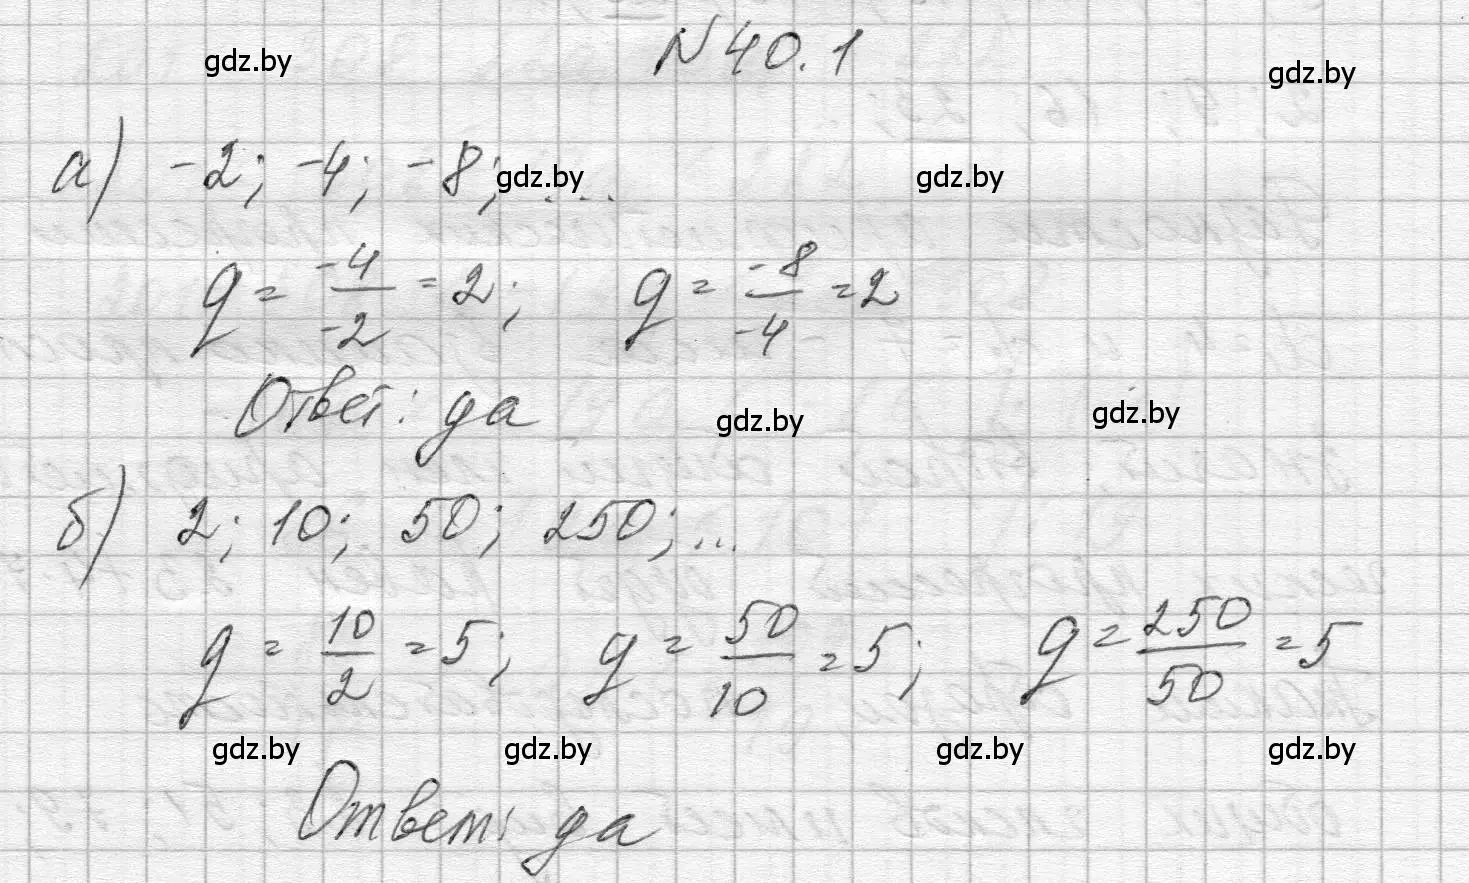 N 40.1
gdz.by
gdz.by
а) -2; -4; -8; ...
gdz.by
gdz.by
q = -4/-2 = 2; q = -8/-4 = 2
Ответ: да
gdz.by
gdz.by
б) 2; 10; 50; 250; ...
q = 10/2 = 5; q = 50/10 = 5; q = 250/50 = 5
gdz.by
gdz.by
gdz.by
gdz.by
Ответ: да